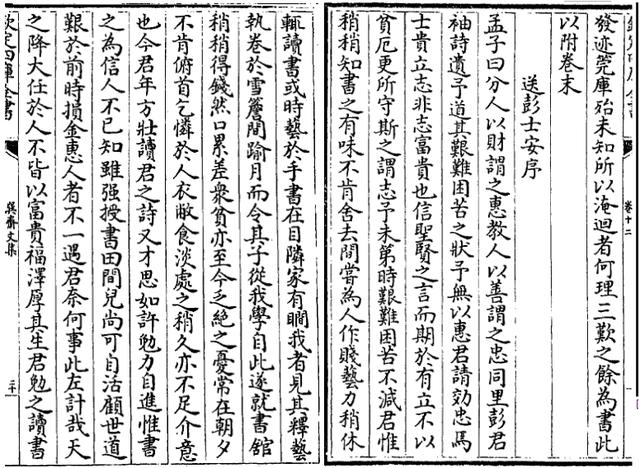 發迹筦庫殆未知所以淹迴者何理三歎之餘為書此
以附卷末
送彭士安序
孟子曰分人以財謂之惠教人以善謂之忠同里彭君
袖詩遺予道其艱難困苦之狀予無以惠君請効忠焉
士貴立志非志富貴也信聖賢之言而期於有立不以
貧厄更所守斯之謂志予未第時艱難困苦不減君惟
稍稍知書之有味不肯舍去間嘗為人作賤藝力稍休
輒讀書或時藝於手書在目隣家有瞯我者見其釋藝
執卷於雪簷間踰月而令其子從我學自此遂就書館
稍稍得錢然口累差衆貧亦至今之絶之憂常在朝夕
不肯俯首乞憐於人衣敝食淡處之稍久亦不足介意
也今君年方壯讀君之詩又才思如許勉力自進惟書
之為信人不已知雖强授書田間兒尚可自活顧世道
艱於前時損金惠人者不一遇君奈何事此左計哉天
之降大任於人不皆以富貴福澤厚其生君勉之讀書
欽定四庫全書
巽齋文集
二十
卷十二